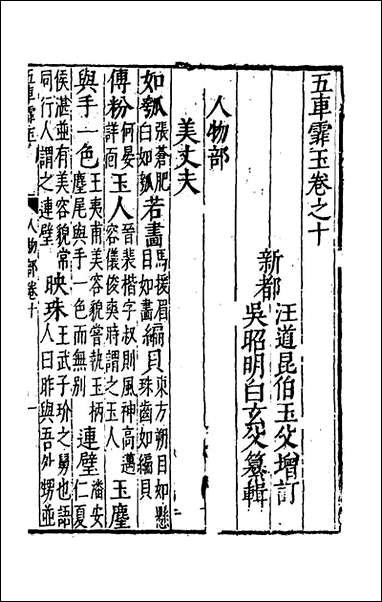 五車霏玉卷之十
新都
汪道昆伯玉父增訂
吳昭明白玄父纂輯
人物部
美丈夫
如瓠張蒼肥白如瓠若畫馬援眉目如畫編貝東方朔目如懸珠齒如編貝
傅粉何晏詳前玉人晉裴楷字叔則風神高邁容儀俊爽時謂之玉人玉麈
與手一色王夷甫美容貌嘗執玉柄麈尾與手一色而無別連璧潘安仁夏
侯湛並有美容貌常同行人謂之連璧映珠王武子玠之舅也語人曰昨與吾外甥並
五車霏玉 人物部卷十 一